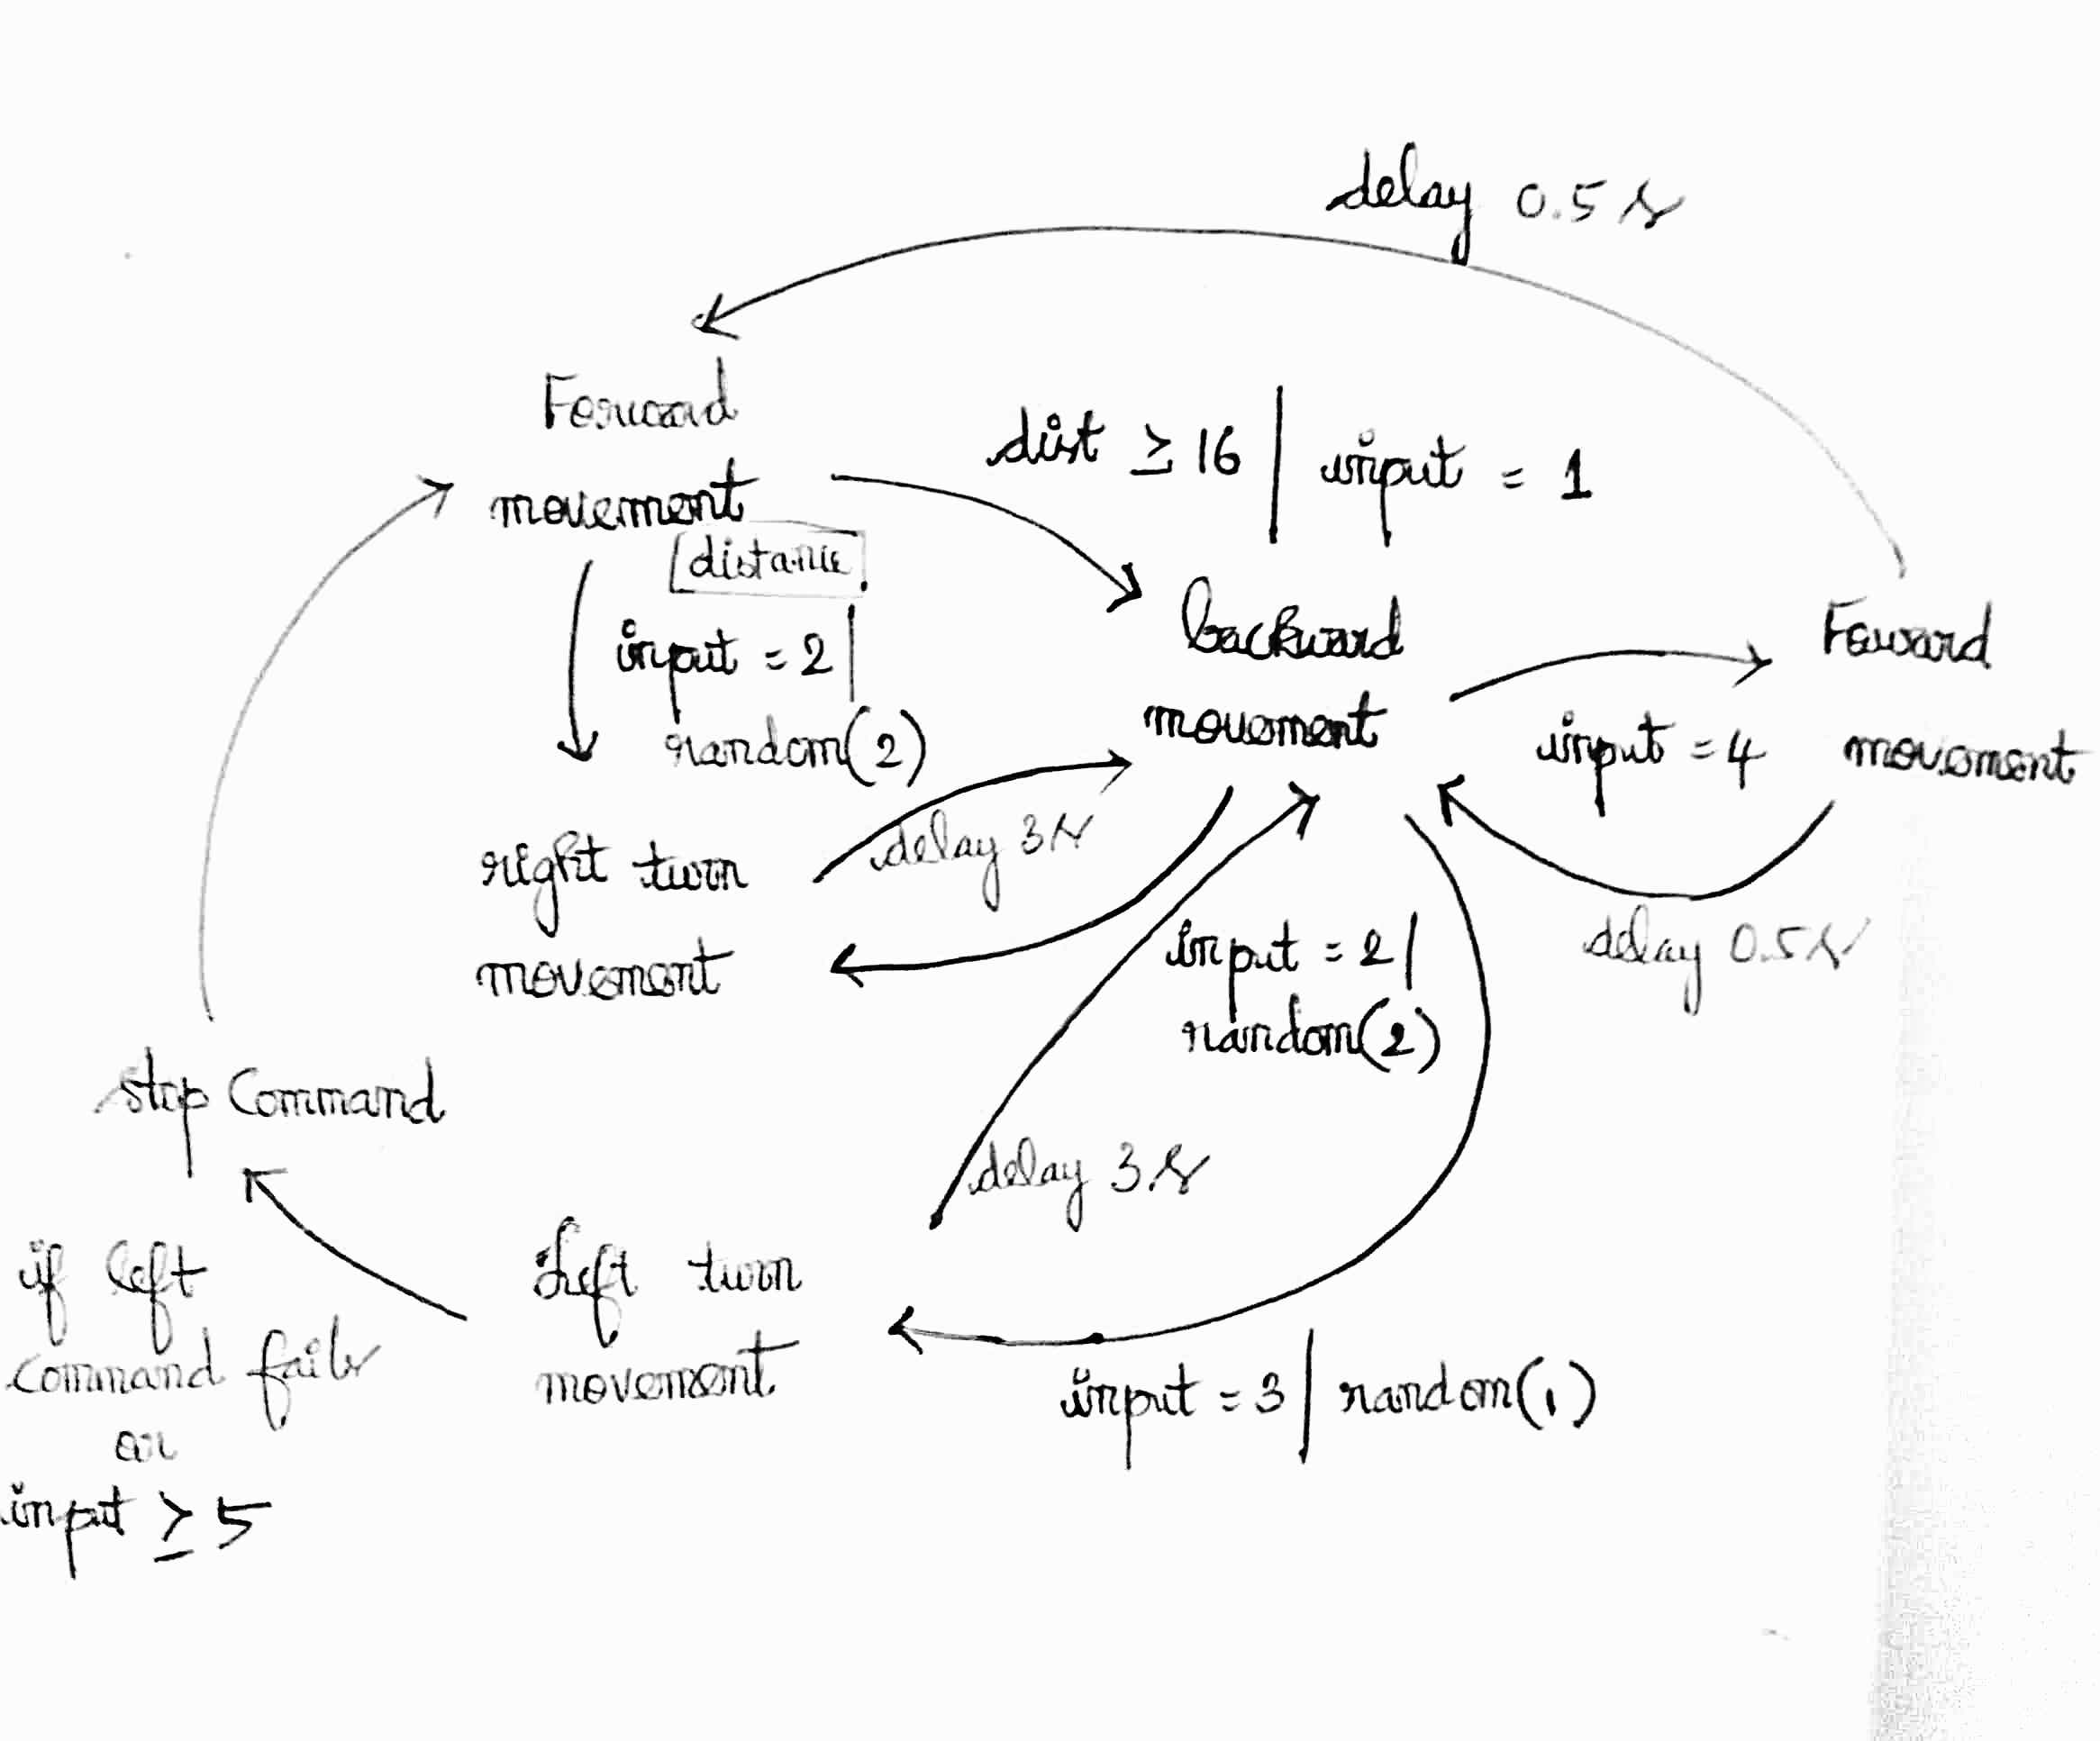 delay 0.5 s
Forward
movement
dist ≥ 16 | input = 1
distance
input = 2 |
random(2)
backward
movement
Foward
movement
input = 4
delay 3s
right turn
movement
delay 0.5s
input = 2 |
random(2)
stop Command
delay 3s
if left
Command fails
or
input ≥ 5
Left turn
movement
input = 3 | random(1)